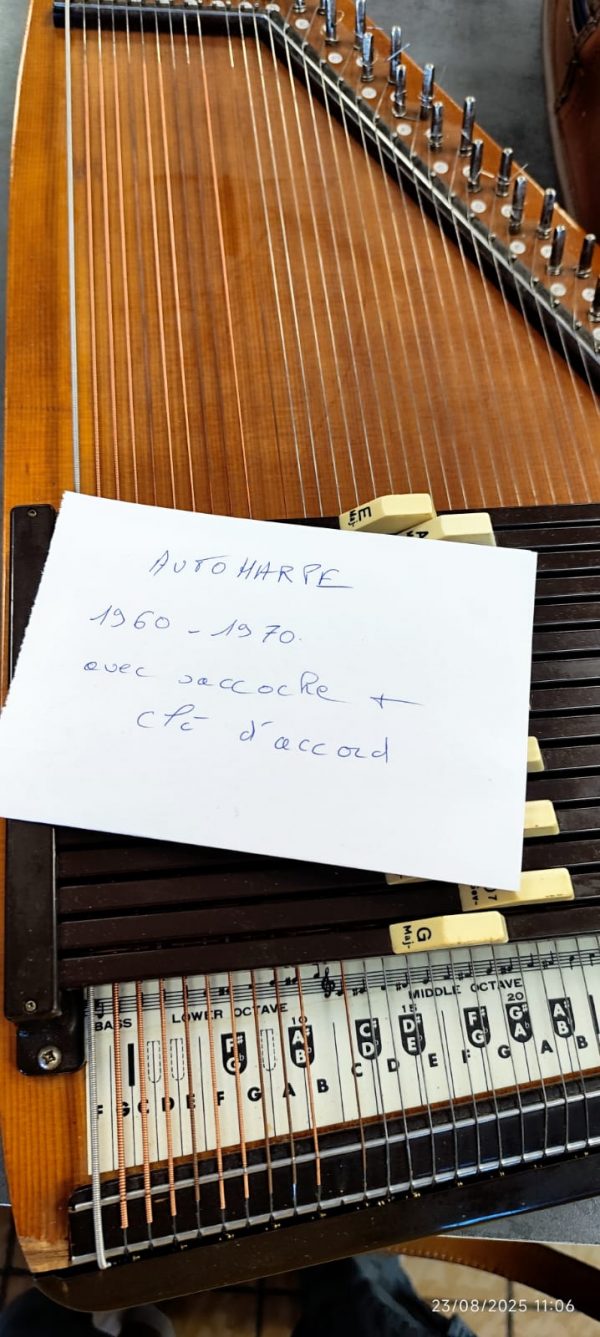 E
Maj-
A
AUTOHARPE
1960 - 1970.
avec saccoche +
clé d'accord
7
Sev-
G
Maj-
BASS LOWER OCTAVE MIDDLE OCTAVE
10 15 20
F# G♭ A# B♭ C# D♭ D# E♭ F# G♭ G# A♭ A# B♭
F G C D E F G A B C D E F G A B
23/08/2025 11:06